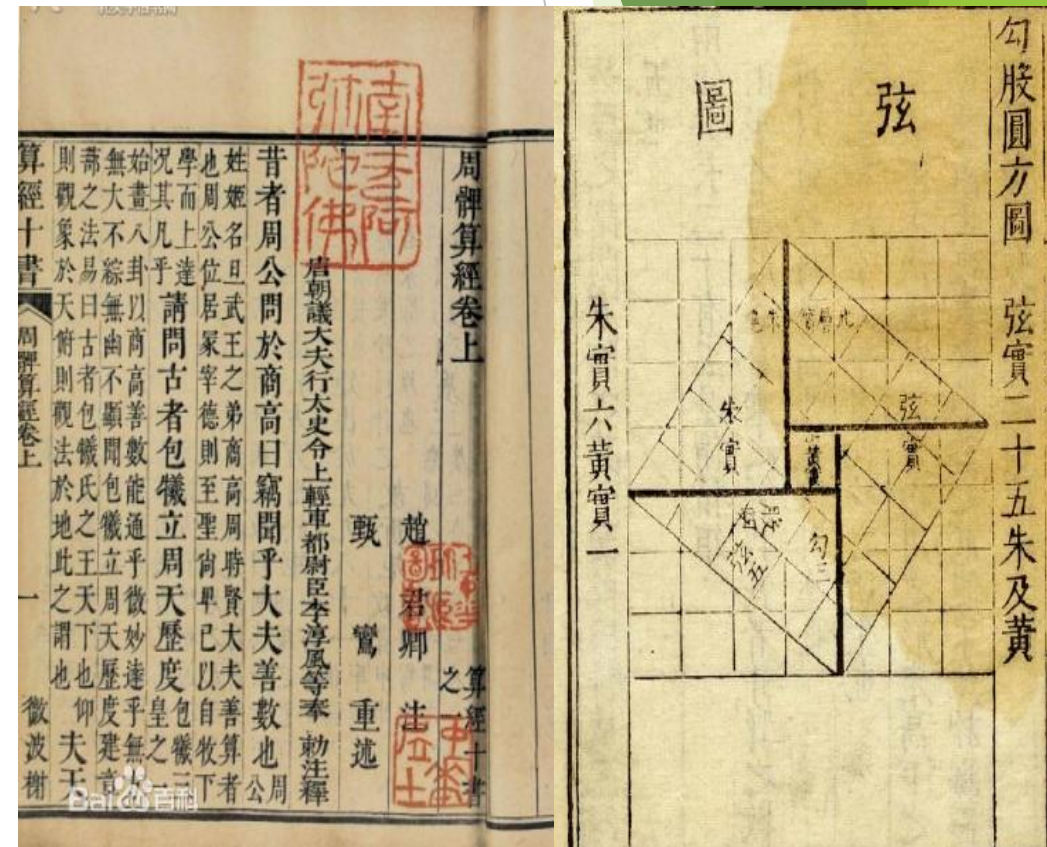 周髀算經卷上
算經十書
之一
趙君卿 注
甄鸞 重述
唐朝議大夫行太史令上輕車都尉臣李淳風等奉 勅注釋
昔者周公問於商高曰竊聞乎大夫善數也 周
公
姓姬名旦武王之弟商高周時賢大夫善算者
也周公位居冢宰德則至聖尚卑己以自牧下
學而上達
況其凡乎
請問古者包犧立周天歷度
包犧三
皇之一
始畫八卦以商高善數能通乎微妙達乎無方
無大不綜無幽不顯聞包犧立周天歷度建章
蔀之法易曰古者包犧氏之王天下也仰
則觀象於天俯則觀法於地此之謂也
夫天
算經十書
周髀算經卷上
一
微波榭
南无阿
弥陀佛
Baidu百科
勾股圓方圖 弦實二十五朱及黃
弦圖
朱實
弦實
黃實
勾三
弦五
朱實六黃實一